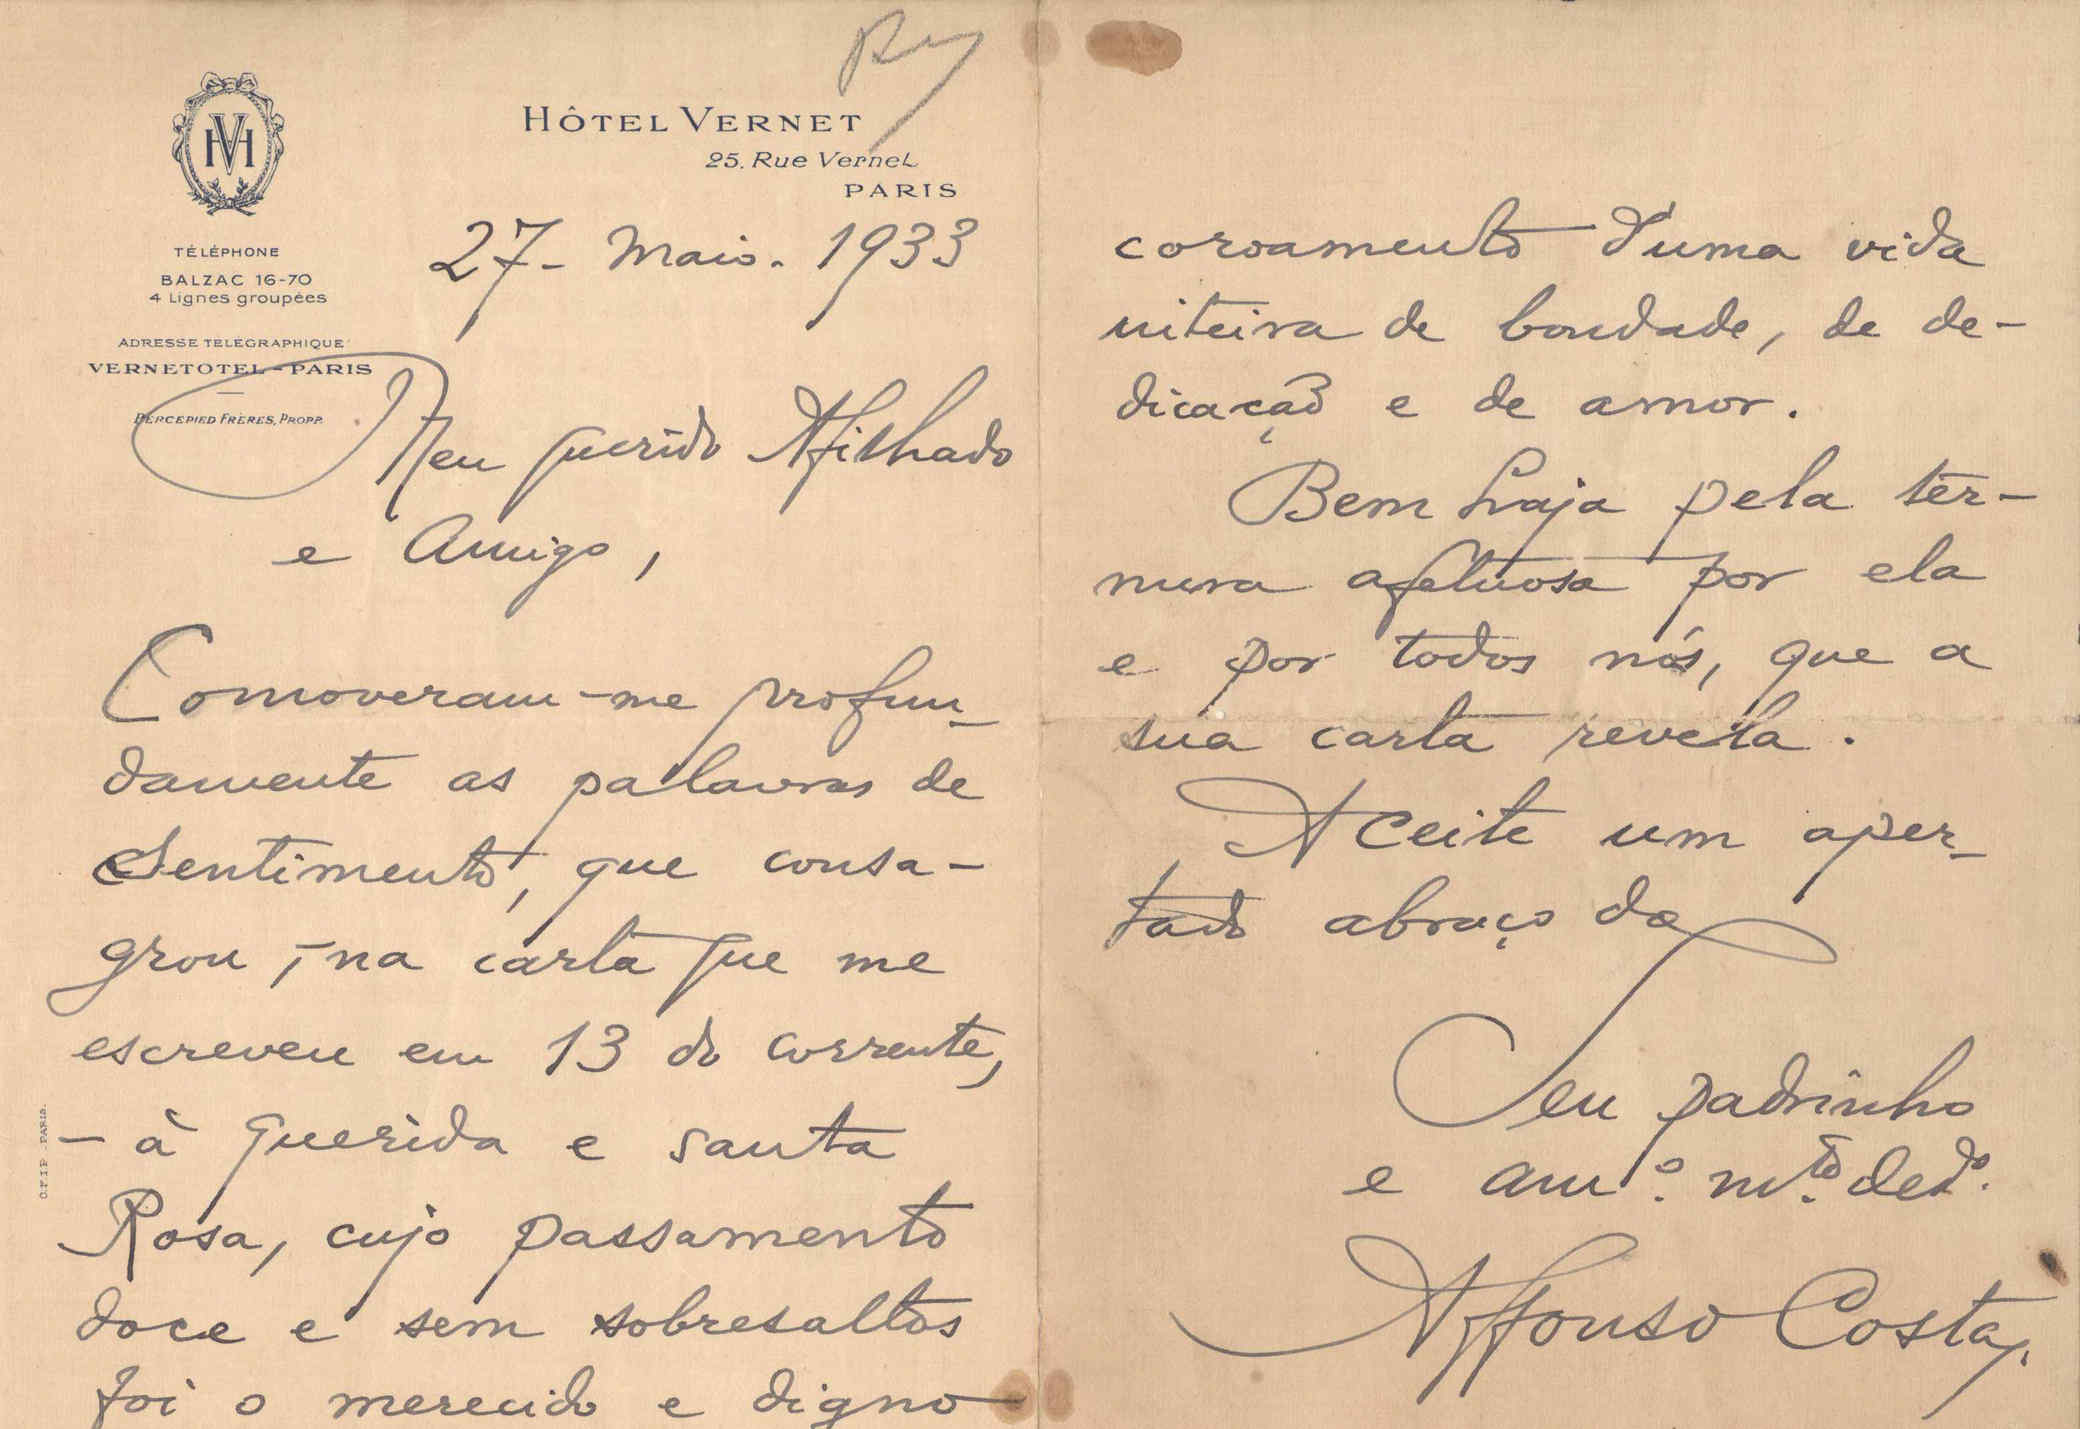 HV
HÔTEL VERNET
25. Rue Vernet
PARIS
TÉLÉPHONE
BALZAC 16-70
4 Lignes groupées
ADRESSE TÉLÉGRAPHIQUE
VERNETOTEL-PARIS
PERCEPIED FRÈRES, PROPP.
27 - Maio - 1933
Meu querido Afilhado
e Amigo,
Comoveram-me profun-
damente as palavras de
sentimento, que consa-
grou, - na carta que me
escreveu em 13 do corrente,
- à querida e santa
Rosa, cujo passamento
doce e sem sobresaltos
foi o merecido e digno
O.F.I.P. PARIS.
coroamento d'uma vida
inteira de bondade, de de-
dicação e de amor.
Bem haja pela ter-
nura afetuosa por ela
e por todos nós, que a
sua carta revela.
Aceite um aper-
tado abraço do
Seu padrinho
e am.º m.to ded.º
Affonso Costa.